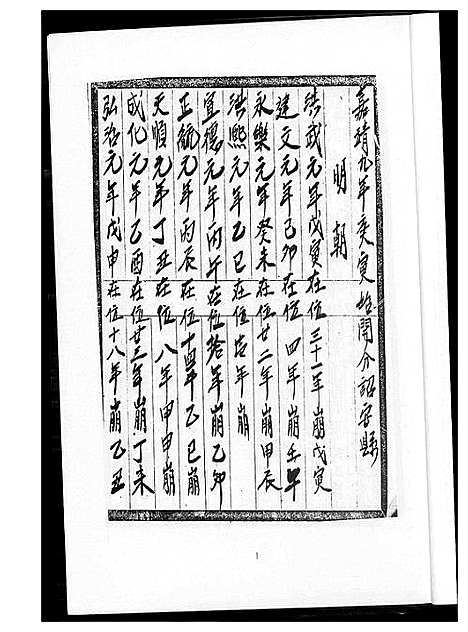 嘉靖九年庚寅始開介詔安縣
明朝
洪武元年戊寅在位三十一年崩戊寅
建文元年己卯在位四年崩壬午
永樂元年癸未在位廿二年崩甲辰
洪熙元年乙巳在位壱年崩
宣德元年丙午在位拾年崩乙卯
正統元年丙辰在位十四年己巳崩
天順元年丁丑在位八年甲申崩
成化元年乙酉在位廿三年崩丁未
弘治元年戊申在位十八年崩乙丑
1